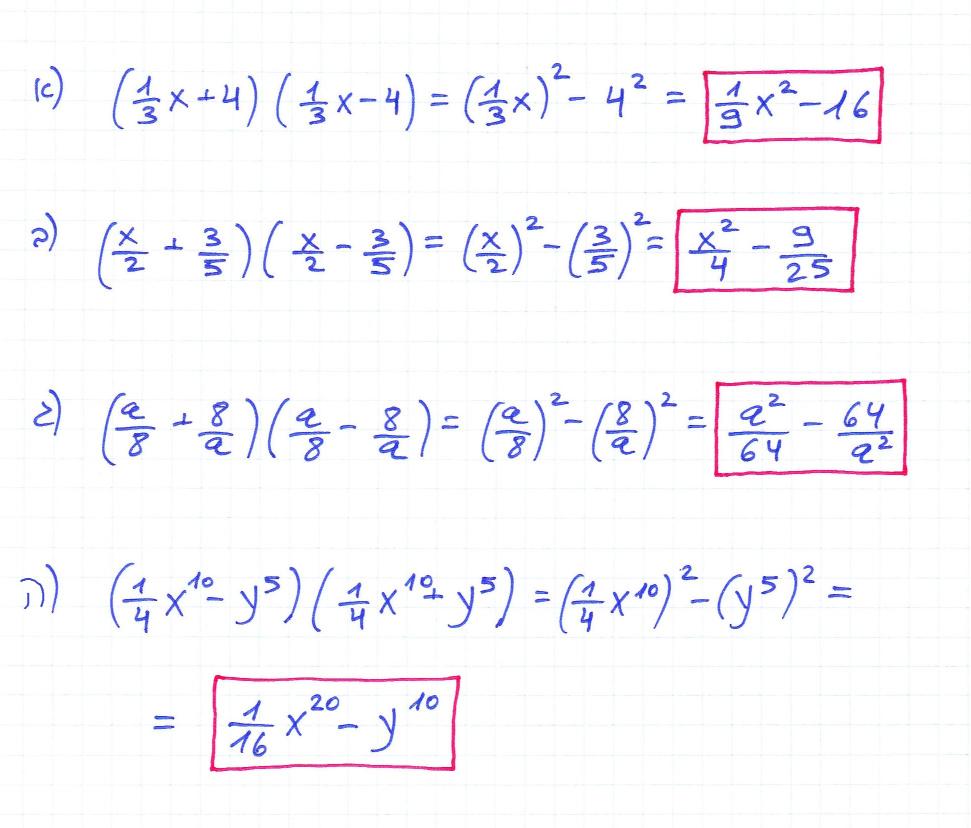 א) (1/3 x + 4) (1/3 x - 4) = (1/3 x)² - 4² = 1/9 x² - 16
ב) (x/2 + 3/5) (x/2 - 3/5) = (x/2)² - (3/5)² = x²/4 - 9/25
(a/8 + 8/a) (a/8 - 8/a) = (a/8)² - (8/a)² = a²/64 - 64/a²
(1/4 x¹⁰ - y⁵) (1/4 x¹⁰ + y⁵) = (1/4 x¹⁰)² - (y⁵)² =
= 1/16 x²⁰ - y¹⁰